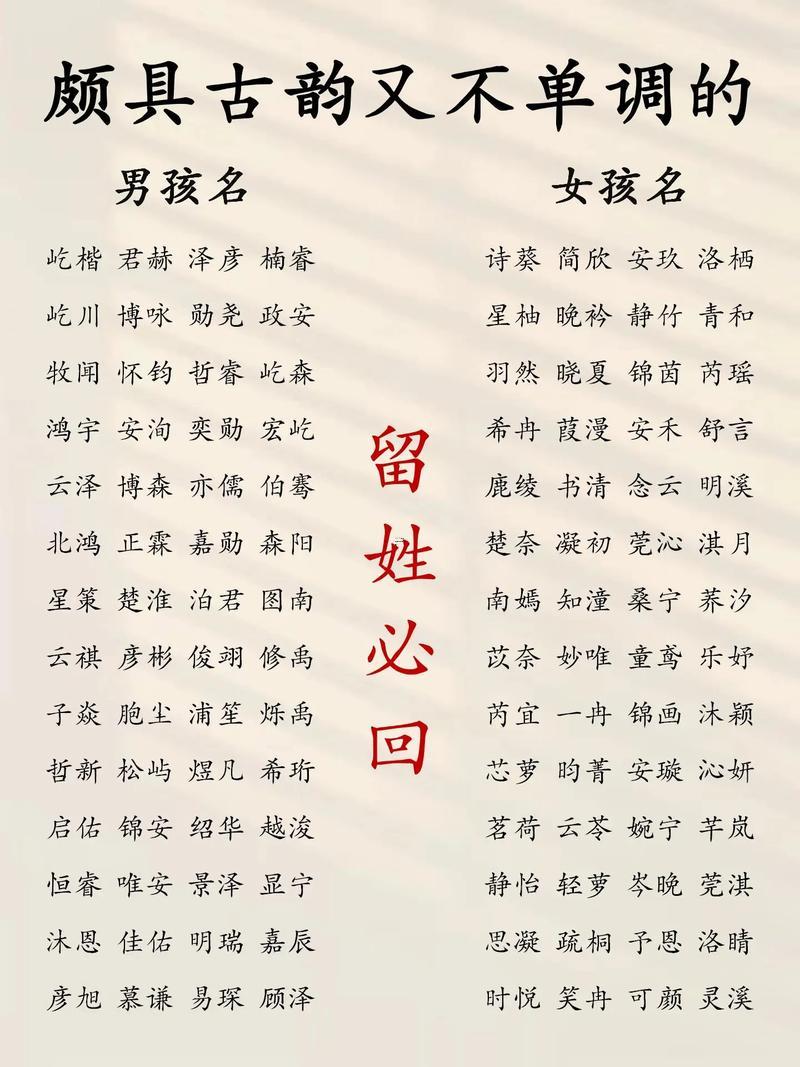 颇具古韵又不单调的
男孩名
屹楷 君赫 泽彦 楠睿
屹川 博咏 勋尧 政安
牧闻 怀钧 哲睿 屹森
鸿宇 安洵 奕勋 宏屹
云泽 博森 亦儒 伯骞
北鸿 正霖 嘉勋 森阳
星策 楚淮 泊君 图南
云祺 彦彬 俊翊 修禹
子焱 胞尘 浦笙 烁禹
哲新 松屿 煜凡 希珩
启佑 锦安 绍华 越浚
恒睿 唯安 景泽 显宁
沐恩 佳佑 明瑞 嘉辰
彦旭 慕谦 易琛 顾泽
留姓必回
女孩名
诗葵 简欣 安玖 洛栖
星柚 晚衿 静竹 青和
羽然 晓夏 锦茵 芮瑶
希冉 葭漫 安禾 舒言
鹿绫 书清 念云 明溪
楚奈 凝初 莞沁 淇月
南嫣 知潼 桑宁 荞汐
苡奈 妙唯 童鸢 乐妤
芮宜 一冉 锦画 沐颖
芯萝 昀菁 安璇 沁妍
茗荷 云苓 婉宁 芊岚
静怡 轻萝 岑晚 莞淇
思凝 疏桐 予恩 洛晴
时悦 笑冉 可颜 灵溪